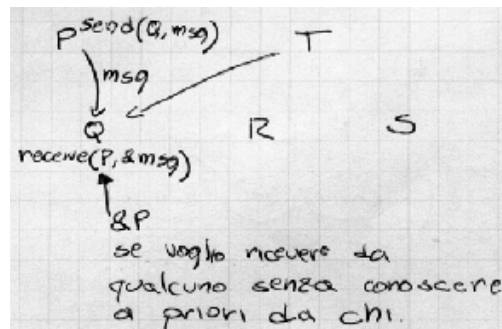 P send(Q, msg)
T
msg
Q
R
S
receive(P, &msg)
&P
se voglio ricevere da
qualcuno senza conoscere
a priori da chi.